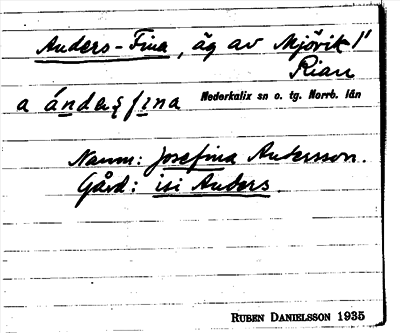 Anders-Fina, äg av Mjövik 1¹
Rian
a ándaʂfɩna Nederkalix sn o. tg. Norrb. län
Namn: Josefina Andersson.
Gård: isi Anders
RUBEN DANIELSSON 1935